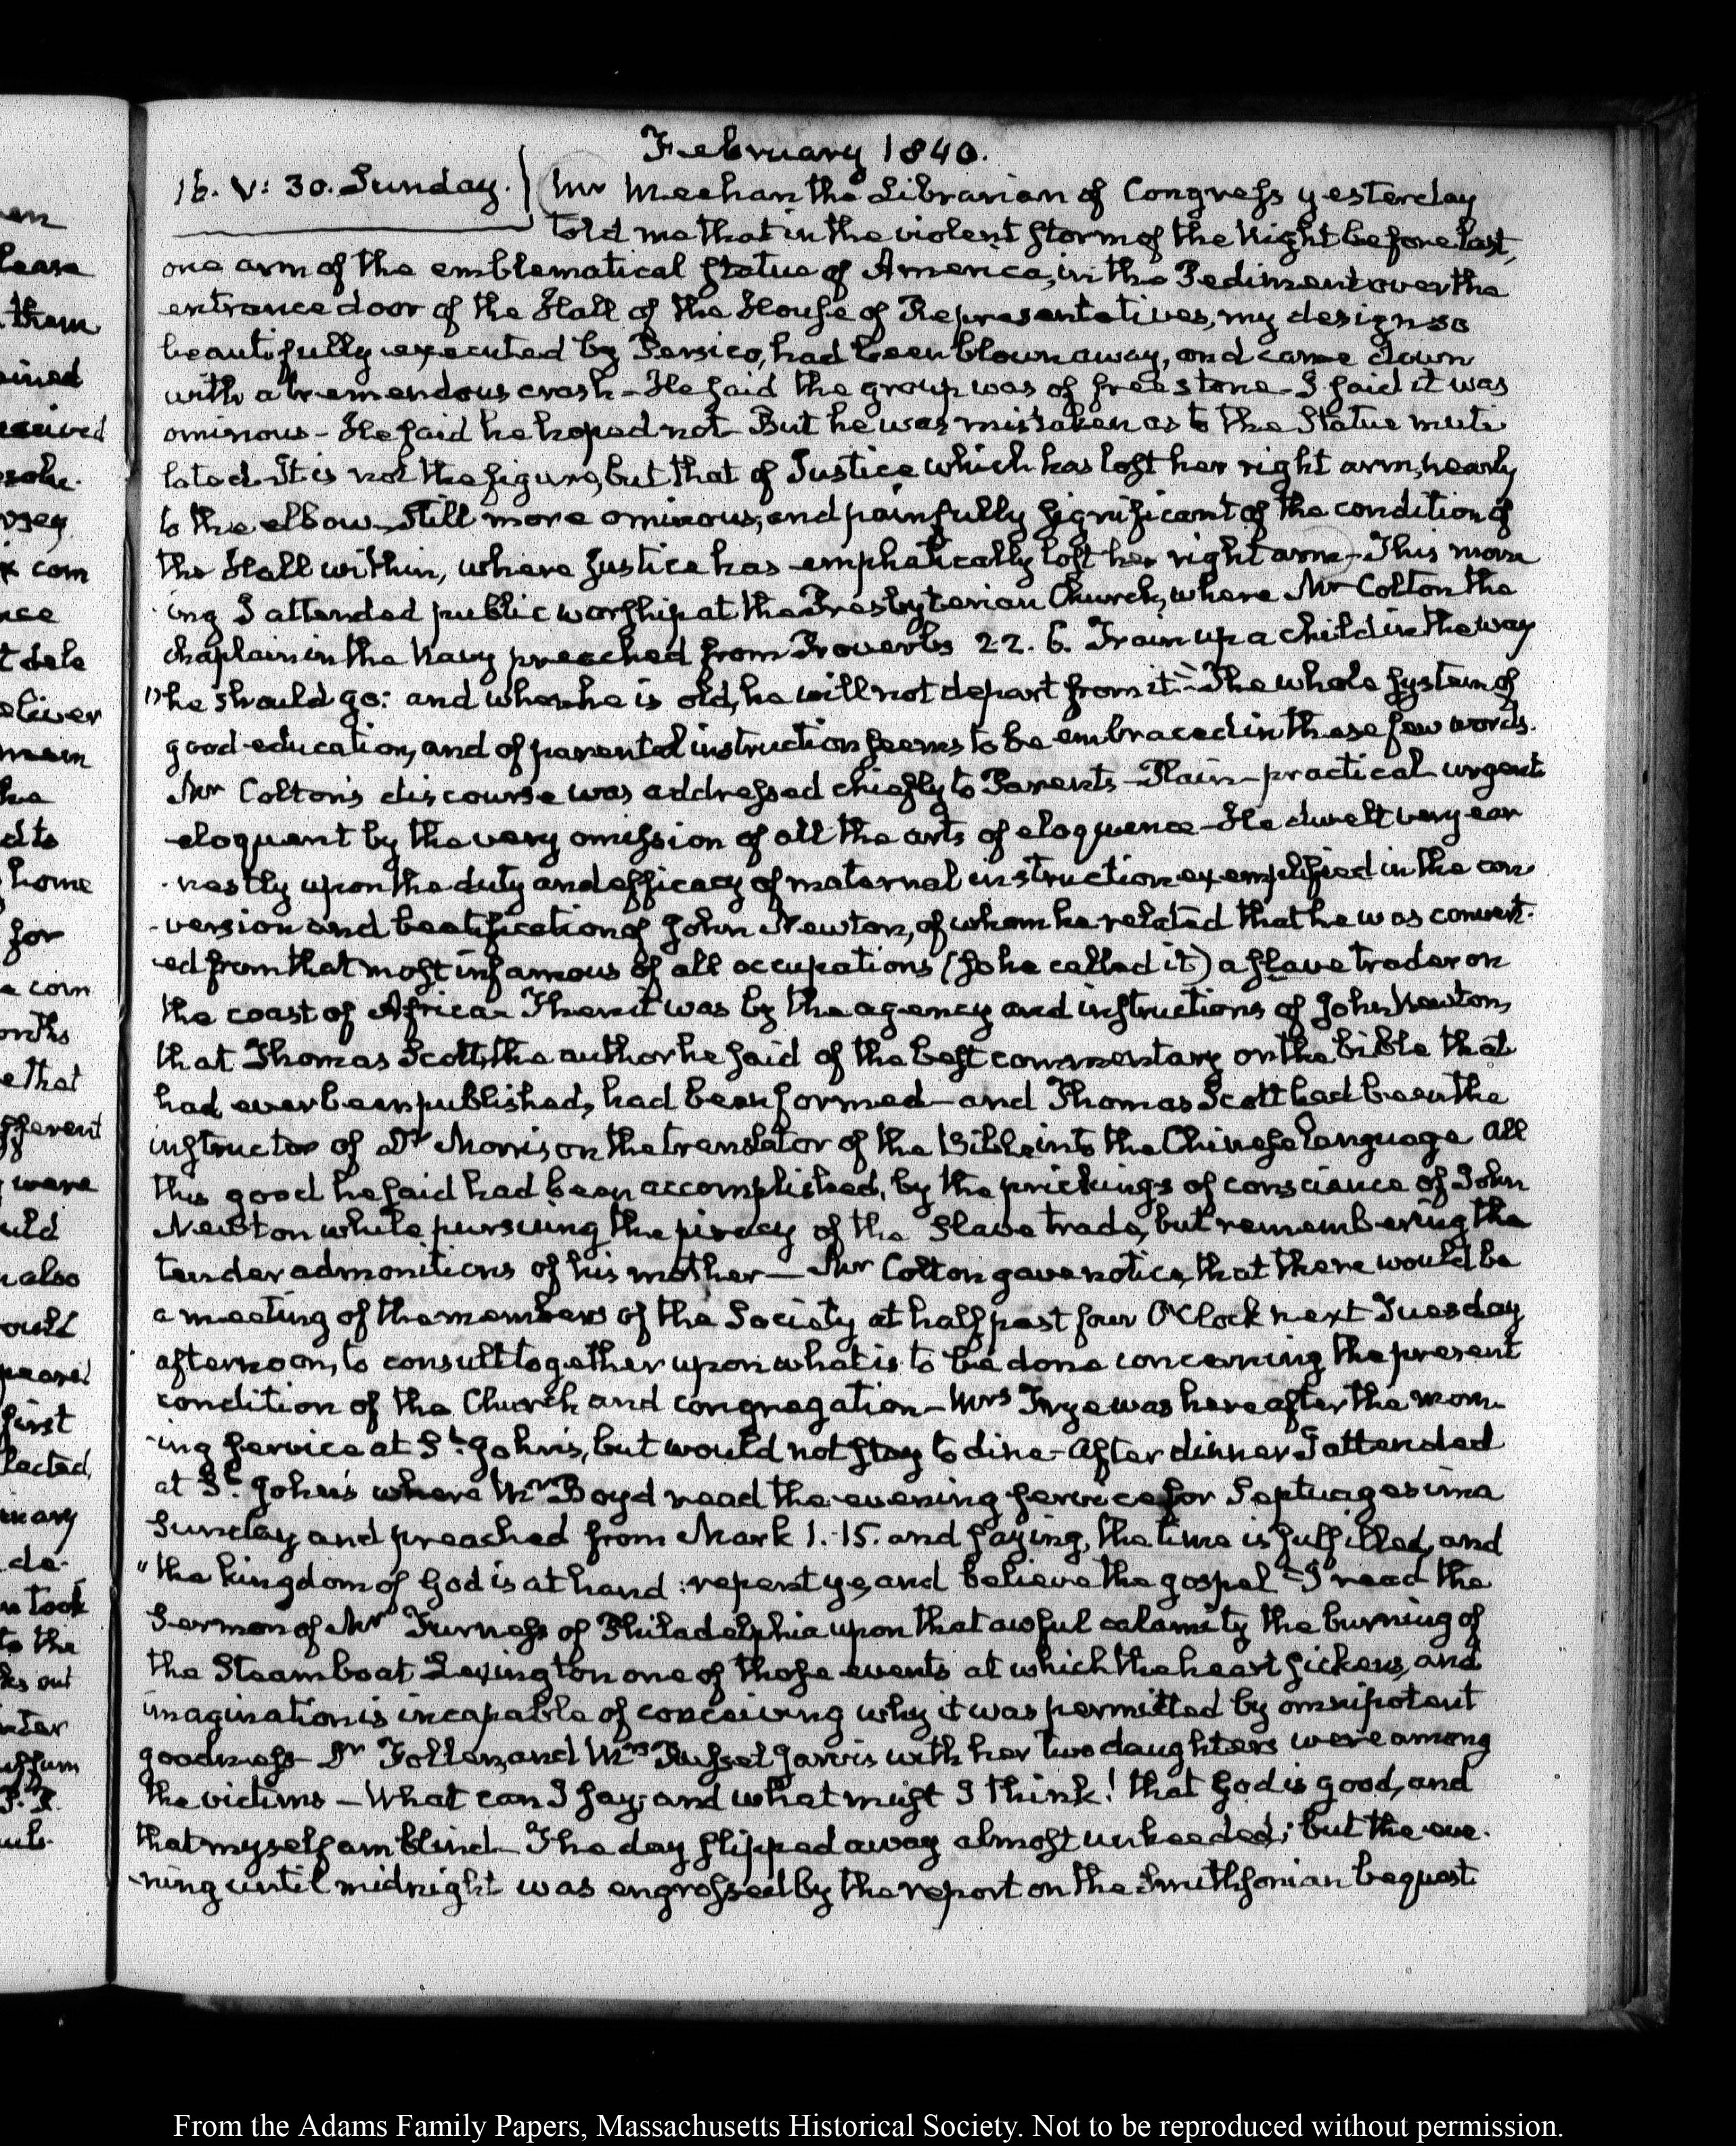 February 1840.
16. V: 30. Sunday. Mr Meehan the Librarian of Congress yesterday
told me that in the violent storm of the Night before last,
one arm of the emblematical statue of America, in the Pediment over the
entrance door of the Hall of the House of Representatives, my design so
beautifully executed by Persico, had been blown away, and came down
with a tremendous crash - He said the group was of free stone - I said it was
ominous - He said he hoped not - But he was mistaken as to the Statue muti
lated - It is not the figure, but that of Justice which has lost her right arm, nearly
to the elbow - Still more ominous, and painfully significant of the condition of
the Hall within, where Justice has emphatically lost her right arm - This morn
ing I attended public worship at the Presbyterian Church, where Mr Colton the
Chaplain in the Navy preached from Proverbs 22. 6. Train up a child in the way
"he should go: and when he is old, he will not depart from it." - The whole system of
good education, and of parental instruction seems to be embraced in these few words.
Mr Colton's discourse was addressed chiefly to Parents - Plain - practical - urgent
eloquent by the very omission of all the arts of eloquence - He dwelt very ear
nestly upon the duty and efficacy of maternal instruction exemplified in the con
version and beatification of John Newton, of whom he related that he was convert-
ed from that most infamous of all occupations (so he called it) a slave trader on
the coast of Africa - Then it was by the agency and instructions of John Newton,
that Thomas Scott, the author he said of the best commentary on the bible that
had ever been published, had been formed - and Thomas Scott had been the
instructor of Dr Morrison the translator of the Bible into the Chinese language All
this good he said had been accomplished, by the prickings of conscience of John
Newton while pursuing the piracy of the Slave trade, but remembering the
tender admonitions of his mother - Mr Colton gave notice, that there would be
a meeting of the members of the Society at half past four O'Clock next Tuesday
afternoon, to consult together upon what is to be done concerning the present
condition of the Church and congregation - Mrs Frye was here after the morn-
ing service at St. John's, but would not stay to dine - After dinner I attended
at St. John's where Mr Boyd read the evening service for Septuagesima
Sunday and preached from Mark 1. 15. and saying, the time is fulfilled, and
"the kingdom of God is at hand: repent ye, and believe the gospel" - I read the
Sermon of Mr Furness of Philadelphia upon that awful calamity the burning of
the Steamboat Lexington one of those events at which the heart sickens, and
imagination is incapable of conceiving why it was permitted by omnipotent
goodness - Dr Follen, and Mrs Russel Jarvis with her two daughters were among
the victims - What can I say; and what must I think! that God is good, and
that myself am blind - The day slipped away almost unheeded; but the eve-
ning until midnight was engrossed by the report on the Smithsonian bequest
From the Adams Family Papers, Massachusetts Historical Society. Not to be reproduced without permission.